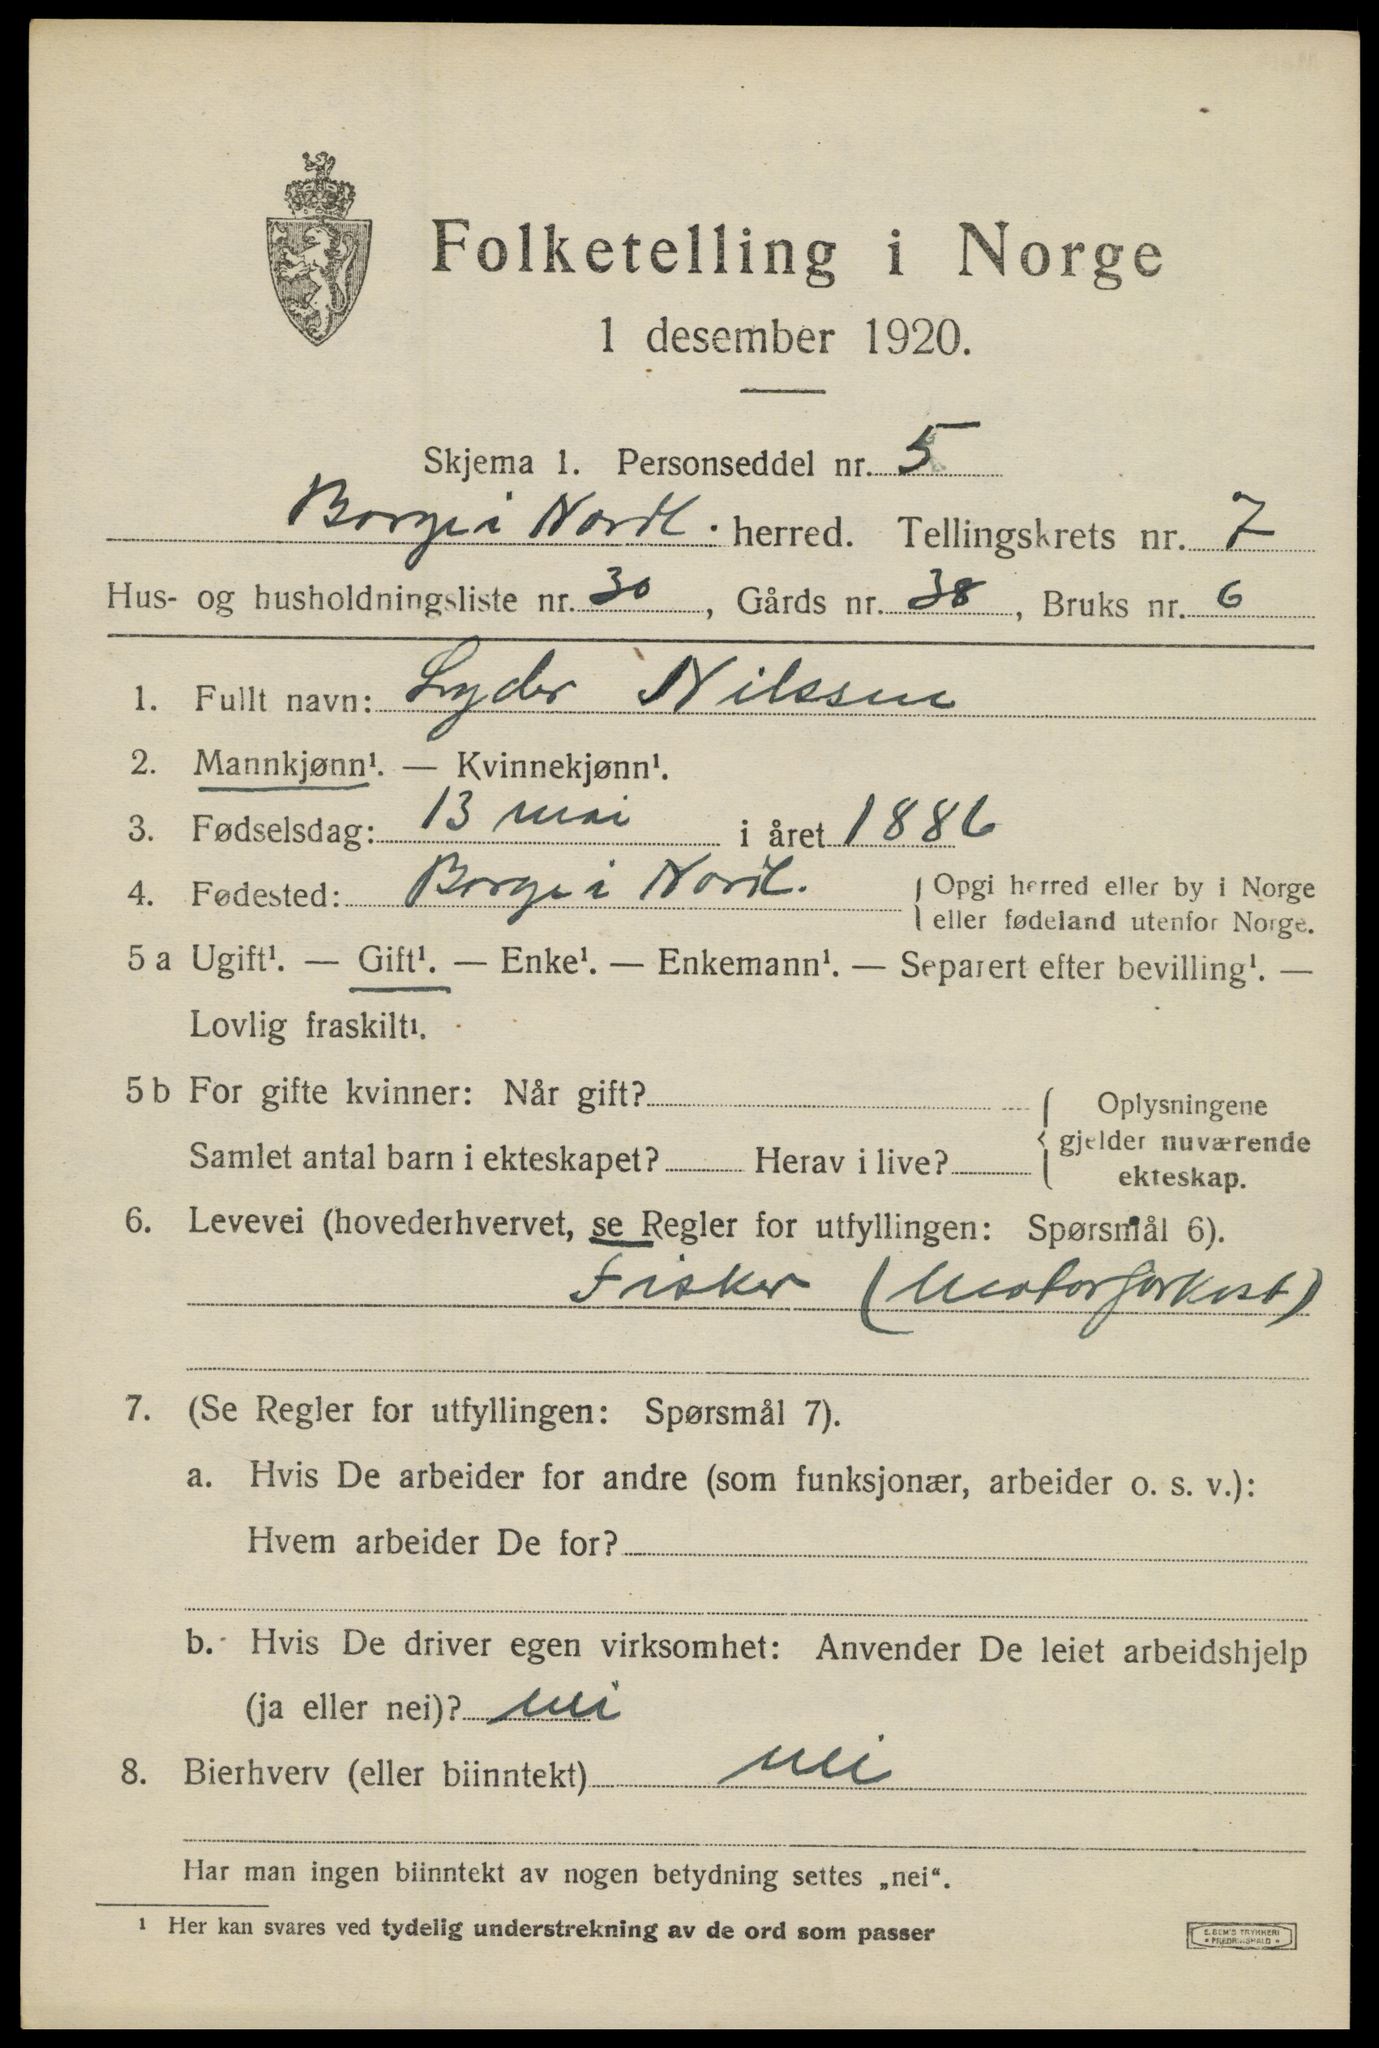 Folketelling i Norge
1 desember 1920.
Skjema 1. Personseddel nr. 5
Borge i Nordl. herred. Tellingskrets nr. 7
Hus- og husholdningsliste nr. 30, Gårds nr. 38, Bruks nr. 6
1. Fullt navn: Lyder Nilssen
2. Mannkjønn¹. — Kvinnekjønn¹.
3. Fødselsdag: 13 mai i året 1886
4. Fødested: Borge i Nordl. { Opgi herred eller by i Norge
eller fødeland utenfor Norge.
5 a Ugift¹. — Gift¹. — Enke¹. — Enkemann¹. — Separert efter bevilling¹. —
Lovlig fraskilt¹.
5 b For gifte kvinner: Når gift? { Oplysningene
gjelder nuværende
Samlet antal barn i ekteskapet? Herav i live?
ekteskap.
6. Levevei (hovederhvervet, se Regler for utfyllingen: Spørsmål 6).
Fisker (Motorfarkost)
7. (Se Regler for utfyllingen: Spørsmål 7).
a. Hvis De arbeider for andre (som funksjonær, arbeider o. s. v.):
Hvem arbeider De for?
b. Hvis De driver egen virksomhet: Anvender De leiet arbeidshjelp
(ja eller nei)? nei
8. Bierhverv (eller biinntekt) nei
Har man ingen biinntekt av nogen betydning settes „nei“.
¹ Her kan svares ved tydelig understrekning av de ord som passer
E. SEM'S TRYKKERI
• FREDRIKSHALD •